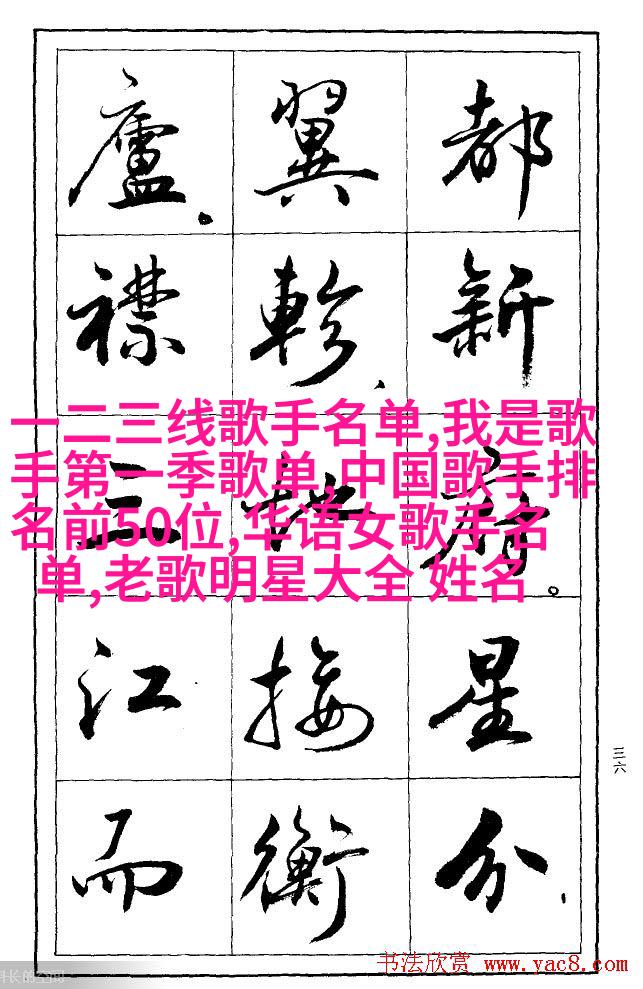 都新府。星分、
翼軫、地接衡
廬。襟三江而
一二三线歌手名单,我是歌
手第一季歌单,中国歌手排
名前50位,华语女歌手名
单,老歌明星大全 姓名
三六
书法欣赏 www.yac8.com
长的空间